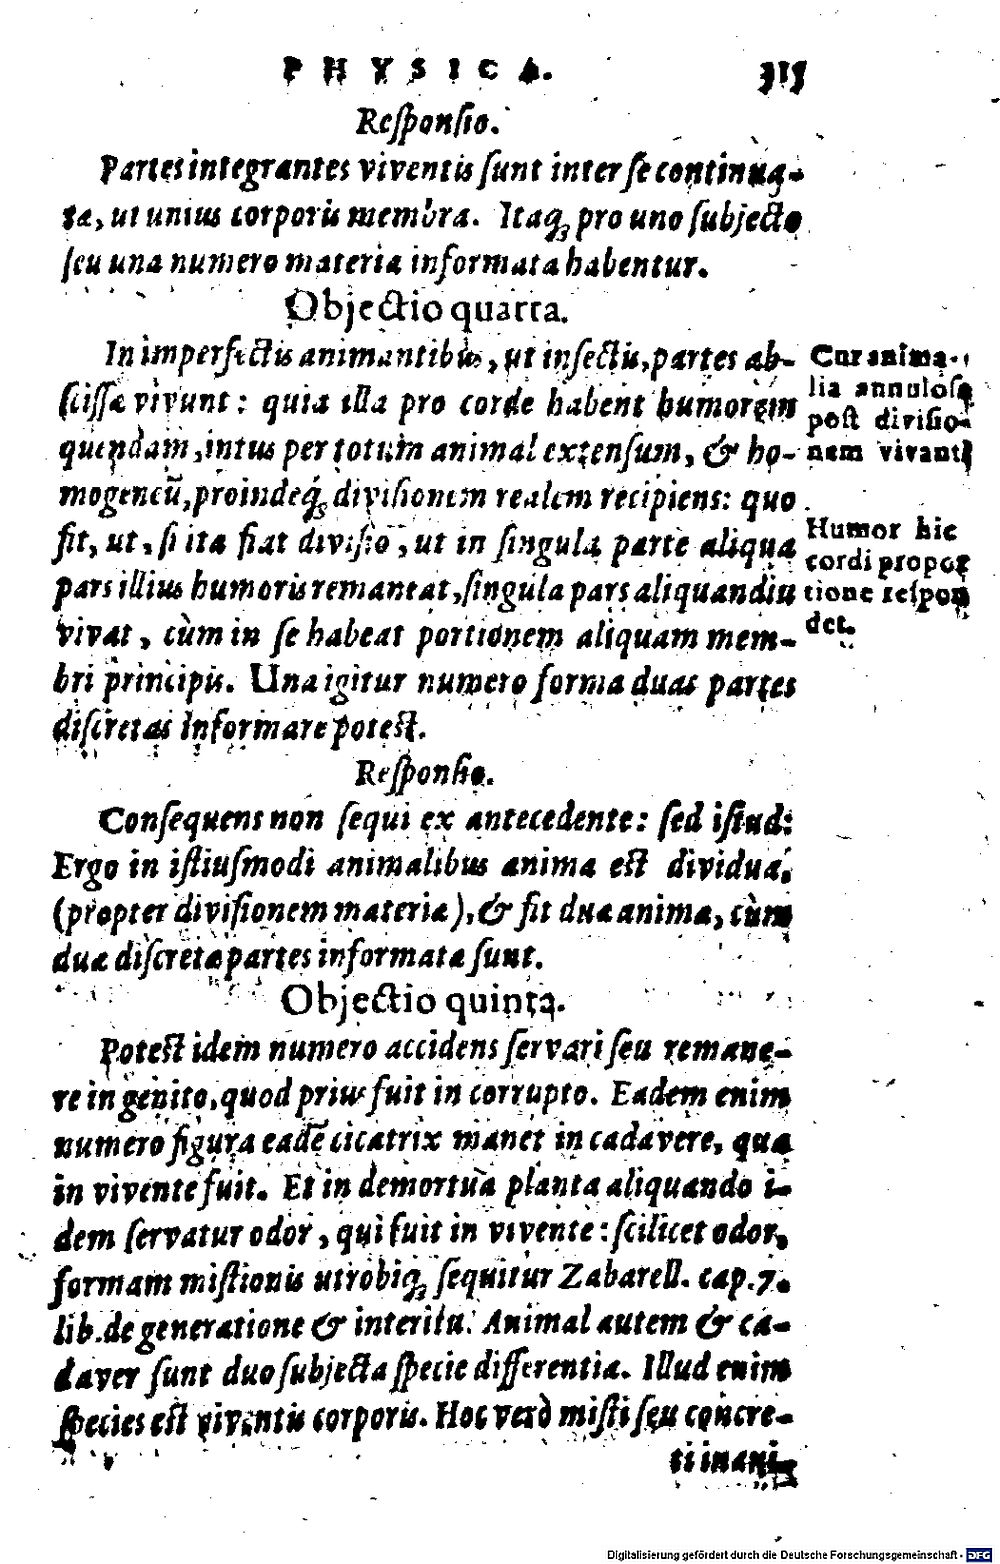 PHYSICA. 315
Responsio.
Partes integrantes viventis sunt inter se continua-
ta, ut unius corporis membra. Itaq; pro uno subjecto
seu una numero materia informata habentur.
Objectio quarta.
In imperfectis animantibus, ut insectis, partes ab-
scissæ vivunt: quia illa pro corde habent humorem
quendam, intus per totum animal extensum, & ho-
mogeneũ, proindeq́; divisionem realem recipiens: quo
fit, ut, si ita fiat divisio, ut in singula parte aliqua
pars illius humoris remaneat, singula pars aliquandiu
vivat, cùm in se habeat portionem aliquam mem-
bri principis. Una igitur numero forma duas partes
discretas informare potest.
Cur anima-
lia annulosa
post divisio-
nem vivant?
Humor hic
cordi propor
tione respon
det.
Responsio.
Consequens non sequi ex antecedente: sed istud:
Ergo in istiusmodi animalibus anima est dividua,
(propter divisionem materiæ), & fit duæ animæ, cùm
duæ discretæ partes informatæ sunt.
Objectio quinta.
Potest idem numero accidens servari seu remane-
re in genito, quod prius fuit in corrupto. Eadem enim
numero figura eadẽ cicatrix manet in cadavere, quæ
in vivente fuit. Et in demortuâ planta aliquando i-
dem servatur odor, qui fuit in vivente: scilicet odor,
formam mistionis utrobiq; sequitur Zabarell. cap. 7.
lib. de generatione & interitu. Animal autem & ca-
daver sunt duo subjecta specie differentia. Illud enim
species est viventis corporis. Hoc verò misti seu concre-
ti inani-
Digitalisierung gefördert durch die Deutsche Forschungsgemeinschaft - DFG